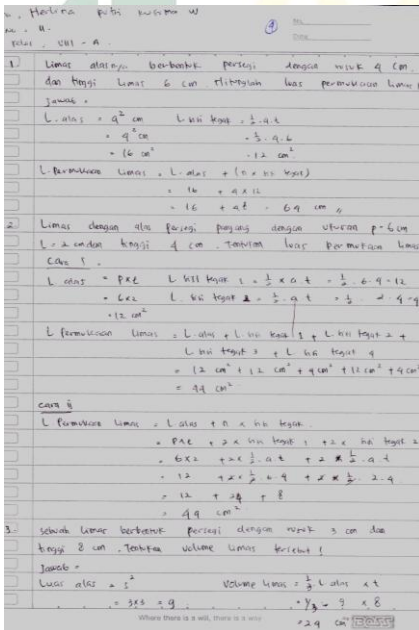 Herlina putri kusuma W
No.
Date
kelas : VIII - A
1. Limas alasnya berbentuk persegi dengan rusuk 4 cm
dan tinggi limas 6 cm. Hitunglah luas permukaan limas
Jawab =
L. alas = 4² cm L sisi tegak = ½ . a . t
= 4² cm = ½ . 4 . 6
= 16 cm² = 12 cm²
L. Permukaan limas = L. alas + (n x sisi tegak)
= 16 + 4 x 12
= 16 + 48 = 64 cm
2. Limas dengan alas persegi panjang dengan ukuran p = 6 cm
L = 2 cm dan tinggi 4 cm. Tentukan luas permukaan limas
Cara I.
L alas = p x l L sisi tegak 1 = ½ x a t = ½ . 6 . 4 = 12
= 6 x 2 L. sisi tegak 2 = ½ . a t = ½ . 2 . 4 = 4
= 12 cm²
L permukaan limas = L. alas + L. sisi tegak 1 + L. sisi tegak 2 +
L. sisi tegak 3 + L. sisi tegak 4
= 12 cm² + 12 cm² + 4 cm² + 12 cm² + 4 cm²
= 44 cm²
Cara II
L Permukaan limas = L alas + n x sisi tegak
= p x l + 2 x sisi tegak 1 + 2 x sisi tegak 2
= 6 x 2 + 2 x ½ . a t + 2 x ½ . a . t
= 12 + 2 x ½ . 6 . 4 + 2 x ½ . 2 . 4
= 12 + 24 + 8
= 44 cm²
3. Sebuah limas berbentuk persegi dengan rusuk 3 cm dan
tinggi 8 cm. Tentukan volume limas tersebut !
Jawab =
Luas alas = s² Volume limas = ⅓ L alas x t
= 3 x 3 = 9 = ⅓ . 9 x 8
= 24 cm³
Where there is a will, there is a way